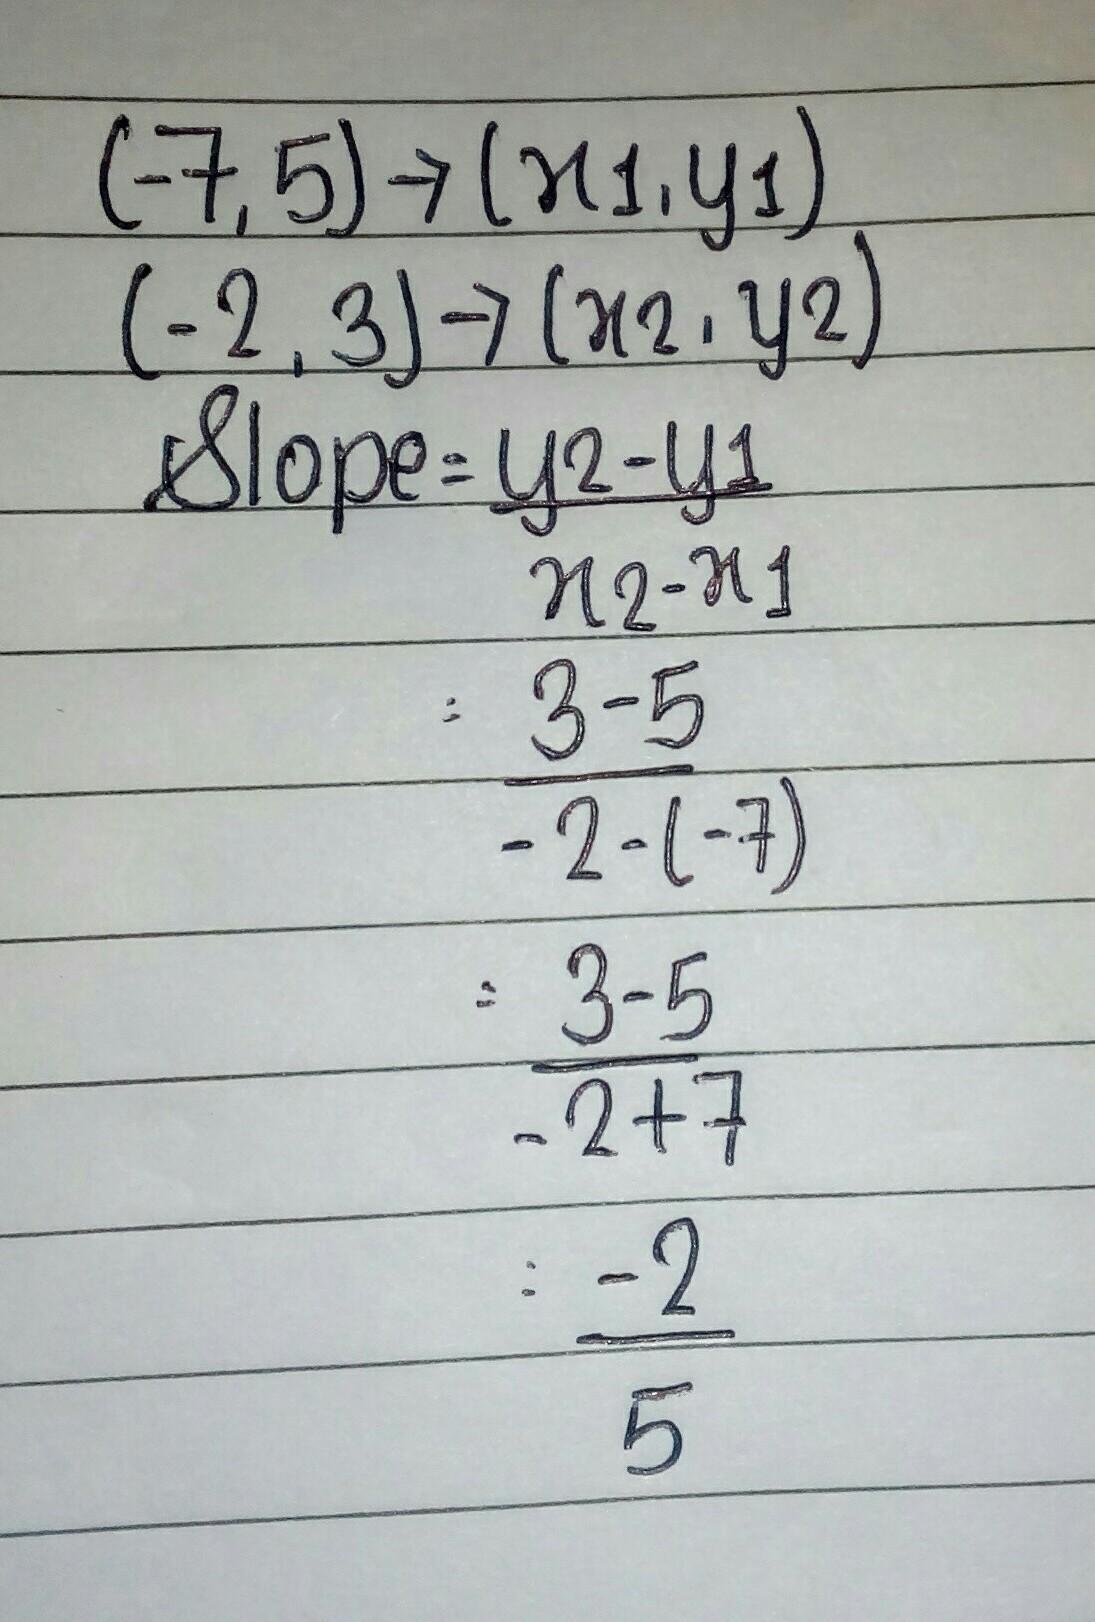 (-7,5)→(x1,y1)
(-2,3)→(x2,y2)
Slope=y2-y1
x2-x1
= 3-5
-2-(-7)
= 3-5
-2+7
= -2
5